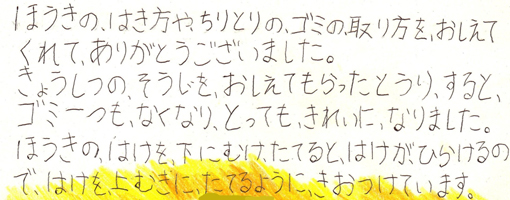 ほうきの、はき方や、ちりとりの、ゴミの、取り方を、おしえて
くれて、ありがとうございました。
きょうしつの、そうじを、おしえてもらったとうり、すると、
ゴミ一つも、なくなり、とっても、きれいに、なりました。
ほうきの、はけを、下にむけたてると、はけが、ひらけるの
で、はけを上むきに、たてるように、きおつけています。